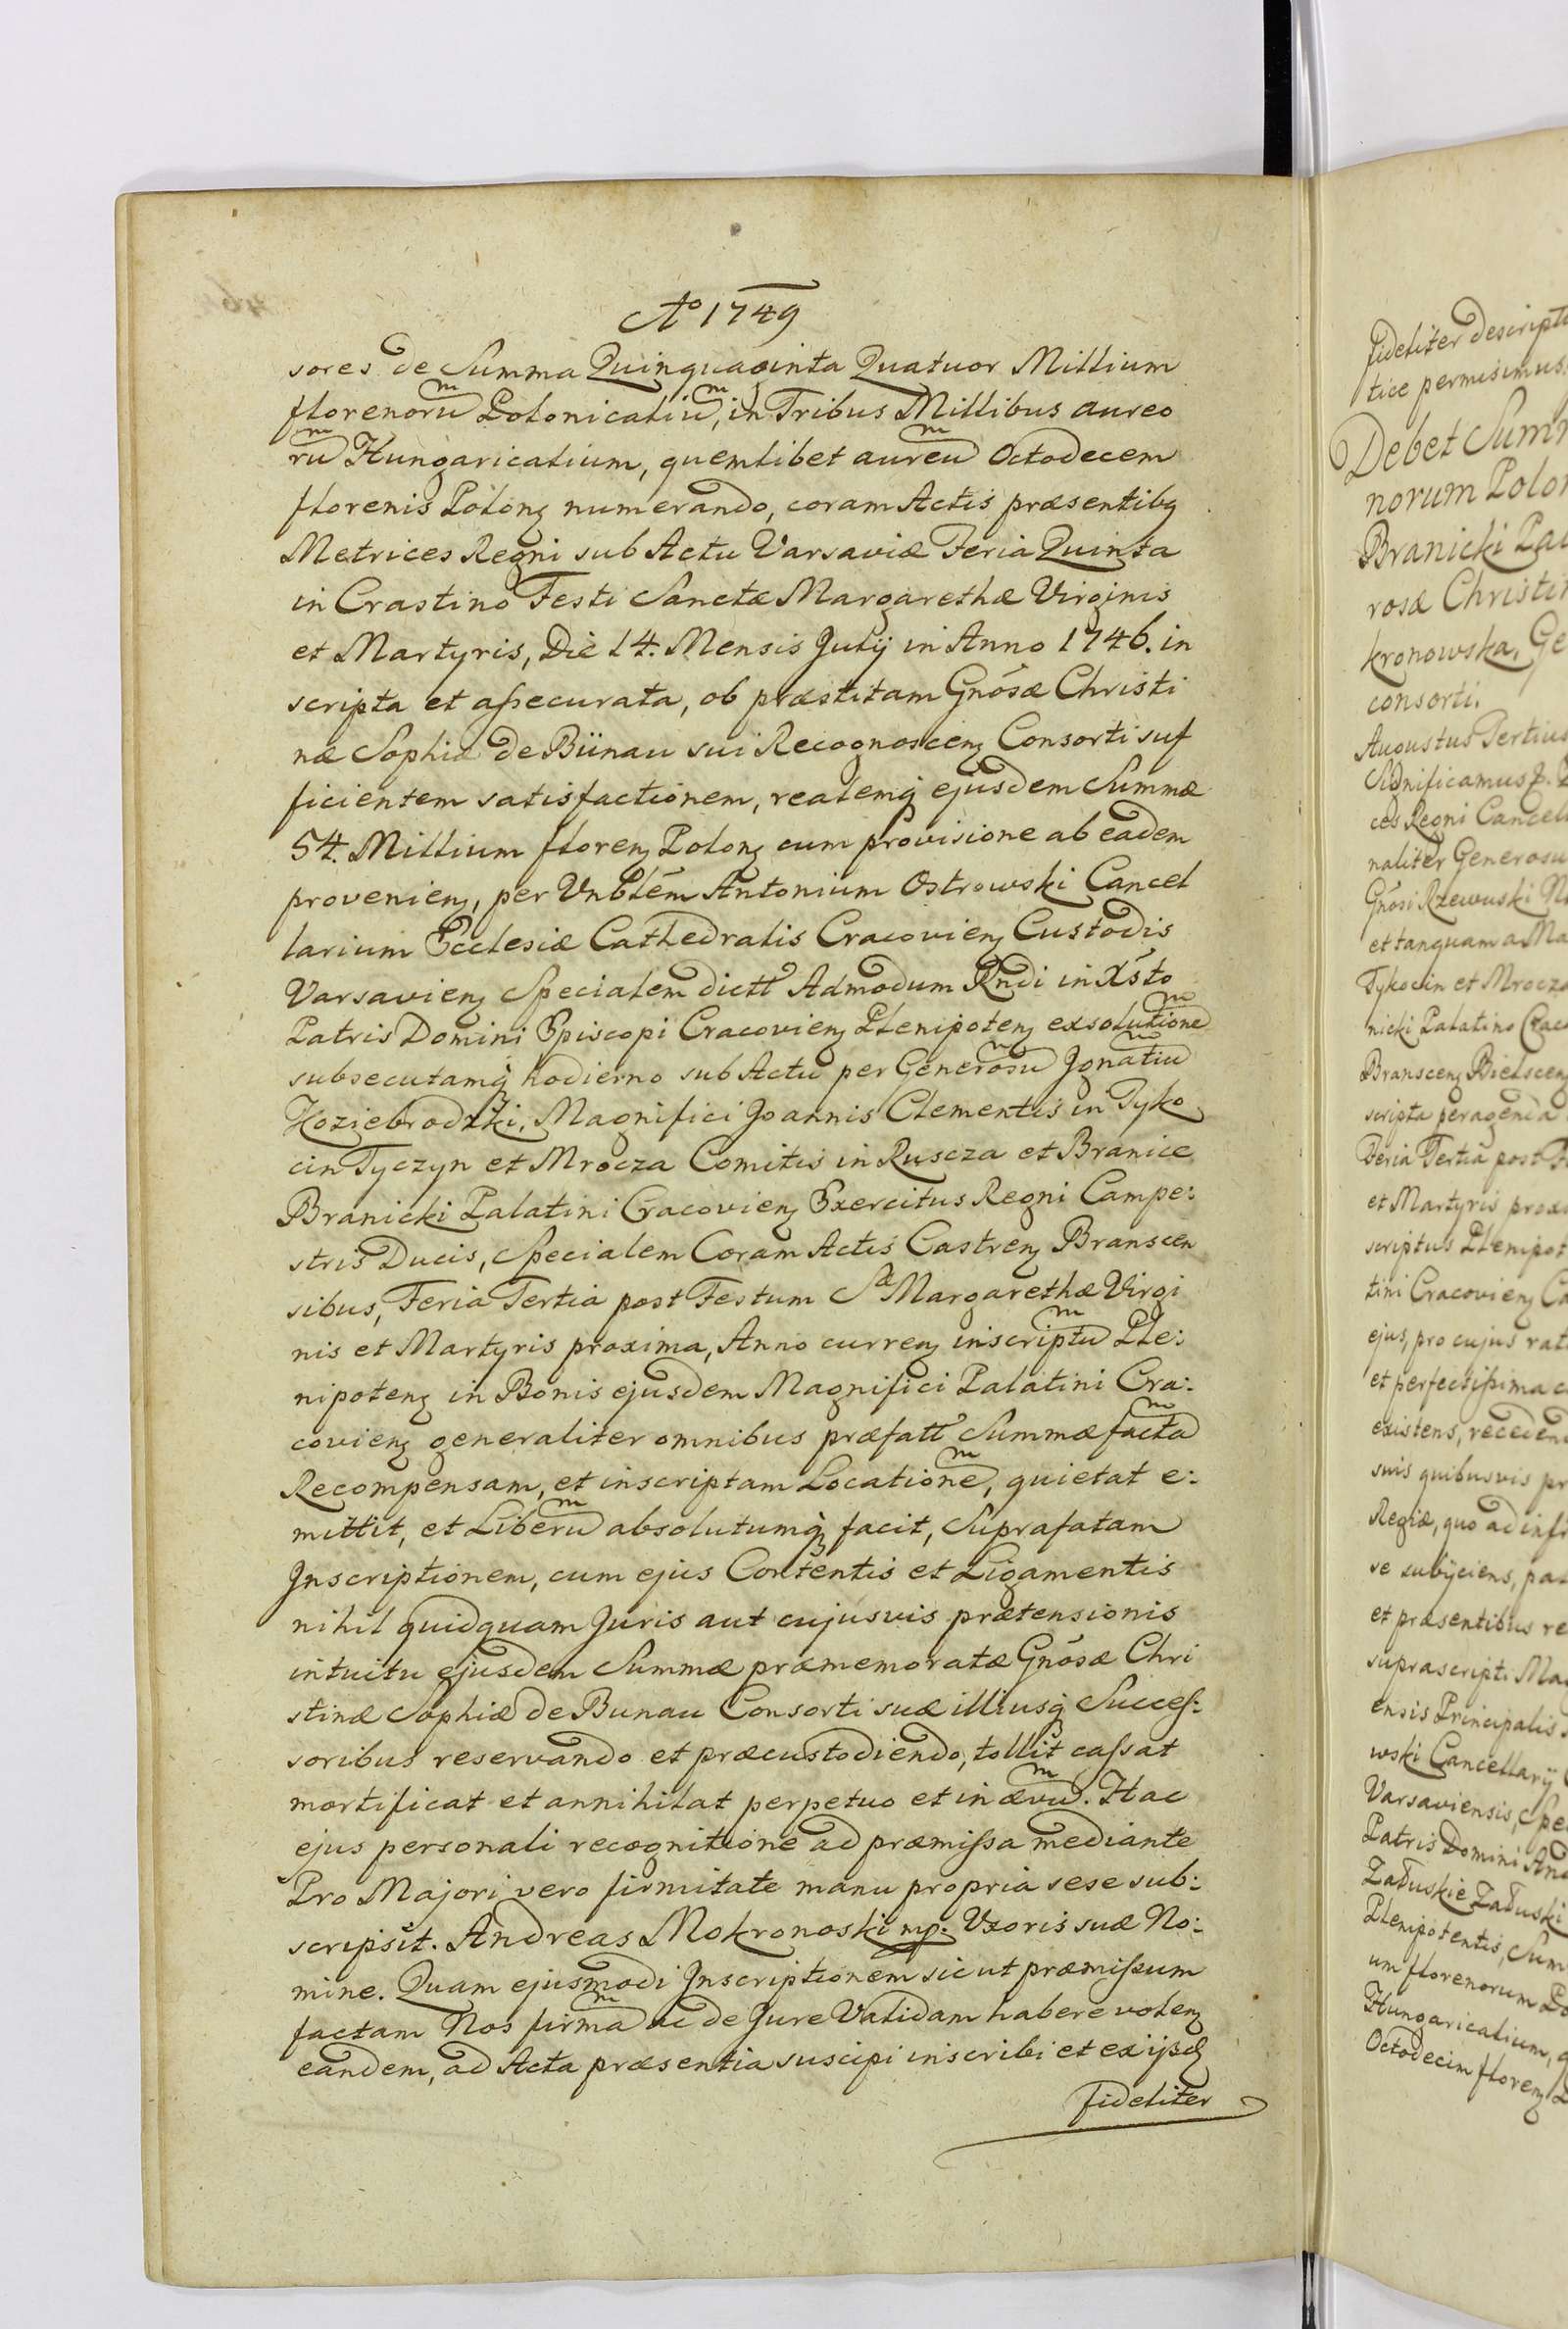 Ao 1749
sores de Summa Quinquaginta Quatuor Millium
florenoru͞m Polonicaliu͞m, in Tribus Millibus aureo
ru͞m Hungaricalium, quemlibet aureu͞m Octodecem
florenis Polonꝫ numerando, coram Actis præsentibꝫ
Metrices Regni sub Actu Varsaviæ Feria Quinta
in Crastino Festi Sanctæ Margarethæ Virginis
et Martyris, Die 14. Mensis Julij in Anno 1746. in
scripta et assecurata, ob præstitam Gnósæ Christi
næ Sophiæ de Bünau sui Recognoscenꝫ Consorti suf
ficientem satisfactionem, realemq̨ ejusdem Summæ
54. Millium florenꝫ Polonꝫ cum provisione ab eadem
provenienꝫ, per Vnblem Antonium Ostrowski Cancel
larium Ecclesiæ Cathedralis Cracovienꝫ Custodis
Varsavienꝫ Specialem dictt Admodum Rndi in Xsto
Patris Domini Episcopi Cracovienꝫ Plenipotenꝫ exsolutione͞m
subsecutamq̨ hodierno sub Actu per Generosu͞m Ignatiu͞m
Koziebrodzki, Magnifici Joannis Clementis in Tyko
cin Tyczyn et Mrocza Comitis in Ruscza et Branice
Branicki Palatini Cracovienꝫ Exercitus Regni Campe:
stris Ducis, Specialem Coram Actis Castrenꝫ Branscen
sibus, Feria Tertia post Festum Sæ Margarethæ Virgi
nis et Martyris proxima, Anno currenꝫ inscriptu͞m Ple:
nipotenꝫ in Bonis ejusdem Magnifici Palatini Cra:
covienꝫ generaliter omnibus præfatt Summæ facta͞m
Recompensam, et inscriptam Locatione͞m, quietat e:
mittit, et Liberu͞m absolutumq̨ facit, Suprafatam
Inscriptionem, cum ejus Contentis et Ligamentis
nihil quidquam Juris aut cujusvis prætensionis
intuitu ejusdem Summæ præmemoratæ Gnósæ Chri
stinæ Sophiæ de Bunau Consorti suæ illiusq̨ Succes:
soribus reservando et præcustodiendo, tollit cassat
mortificat et annihilat perpetuo et in ævu͞m. Hac
ejus personali recognitione ad præmissa mediante
Pro Majori vero firmitate manu propria sese sub:
scripsit. Andreas Mokronoski mp. Vxoris suæ No:
mine. Quam ejusmodi Inscriptionem sicut præmissum
factam Nos firma͞m ac de Jure Validam habere volenꝫ
eandem, ad Acta præsentia suscipi inscribi et ex ijsd
fideliter
fideliter descript
tice permisimus
Debet Sum
norum Polo
Branicki Pa
rosæ Christi
kronowska, Ge
consorti.
Augustus Tertius
Significamus
ces Regni Cancel
naliter Generosu
Gnósi Rzewuski
et tanquam a Ma
Tykocin et Mrocz
nicki Palatino Crac
Branscenꝫ Bielscenꝫ
scripta peragenda
Feria Tertia post F
et Martyris prox
scriptus Plenipot
tini Cracovienꝫ Ca
ejus, pro cujus rat
et perfectissima c
existens, recedend
suis quibusvis pr
Regiæ, quo ad infr
se subijciens, pa
et præsentibus re
suprascripti Ma
ensis Principalis
wski Cancellarij
Varsaviensis, Spe
Patris Domini And
Załuskie Załuski
Plenipotentis, Sum
um florenorum Po
Hungaricalium, q
Octodecim florenꝫ